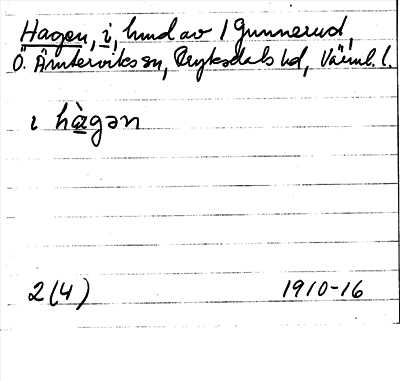 Hagen, i, hmd av 1 Gunnerud,
Ö. Ämterviks sn, Fryksdals hd, Värml. l.
i hàgən
2(4) 1910-16